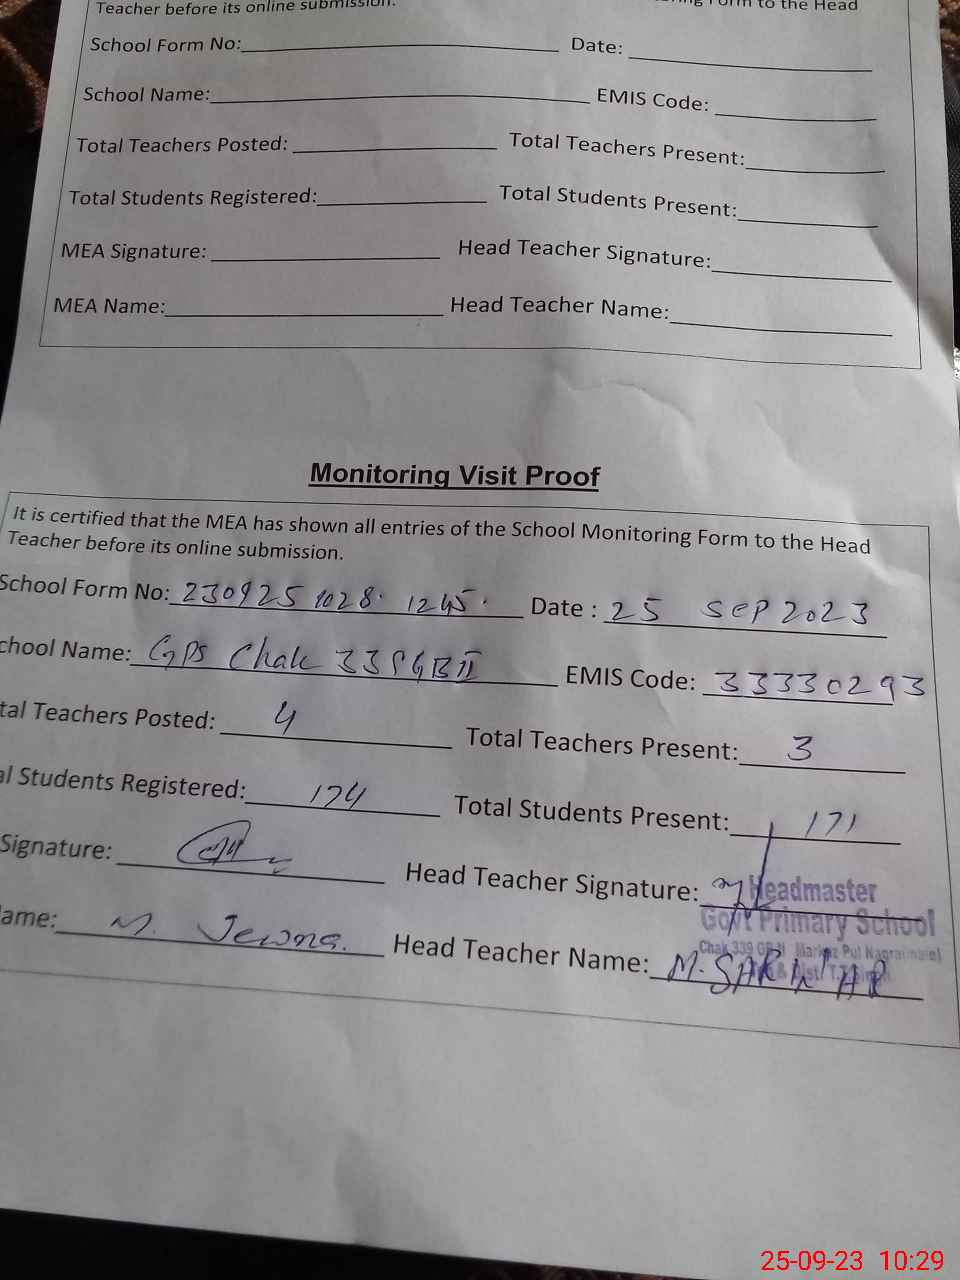 Teacher before its online submission. Form to the Head
School Form No: Date:
School Name: EMIS Code:
Total Teachers Posted: Total Teachers Present:
Total Students Registered: Total Students Present:
MEA Signature: Head Teacher Signature:
MEA Name: Head Teacher Name:
Monitoring Visit Proof
It is certified that the MEA has shown all entries of the School Monitoring Form to the Head
Teacher before its online submission.
School Form No: 230925 1028. 1245. Date : 25 SEP 2023
chool Name: GPS Chak 339GBII EMIS Code: 33330293
tal Teachers Posted: 4 Total Teachers Present: 3
al Students Registered: 174 Total Students Present: 171
Signature: Head Teacher Signature:
Headmaster
Govt Primary School
Chak 339 GB
ame: M. Head Teacher Name: M.
25-09-23 10:29